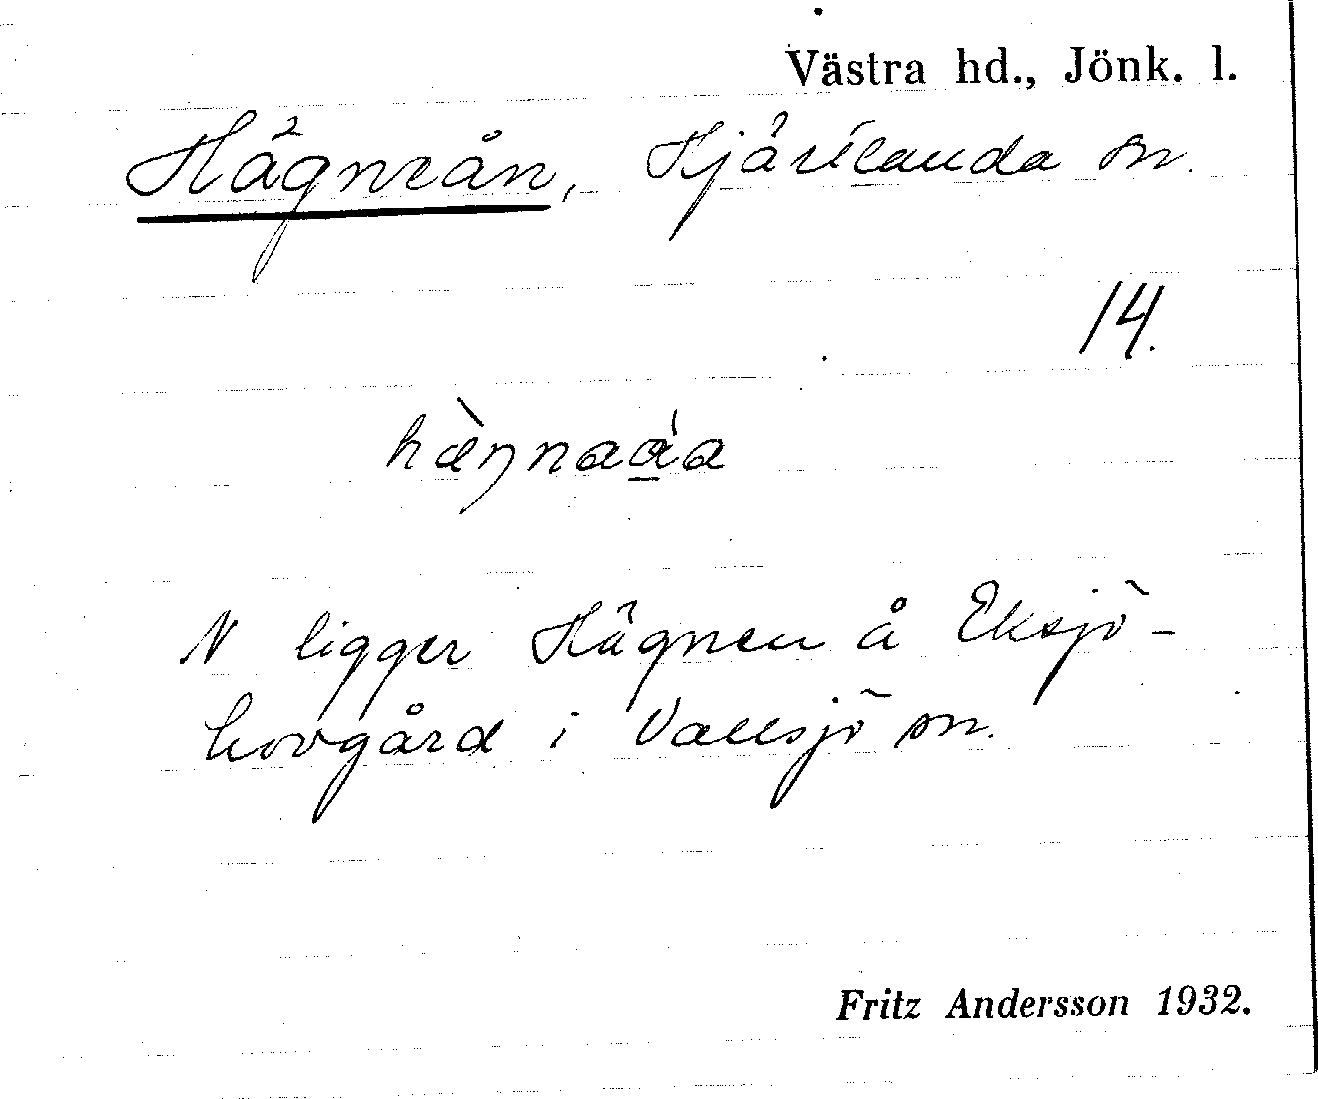 Västra hd., Jönk. l.
Hägneån, Hjärtlanda sn.
14.
hæ̀ŋnaá̱a
N ligger Hägnen å Eksjö-
hovgård i Vallsjö sn.
Fritz Andersson 1932.